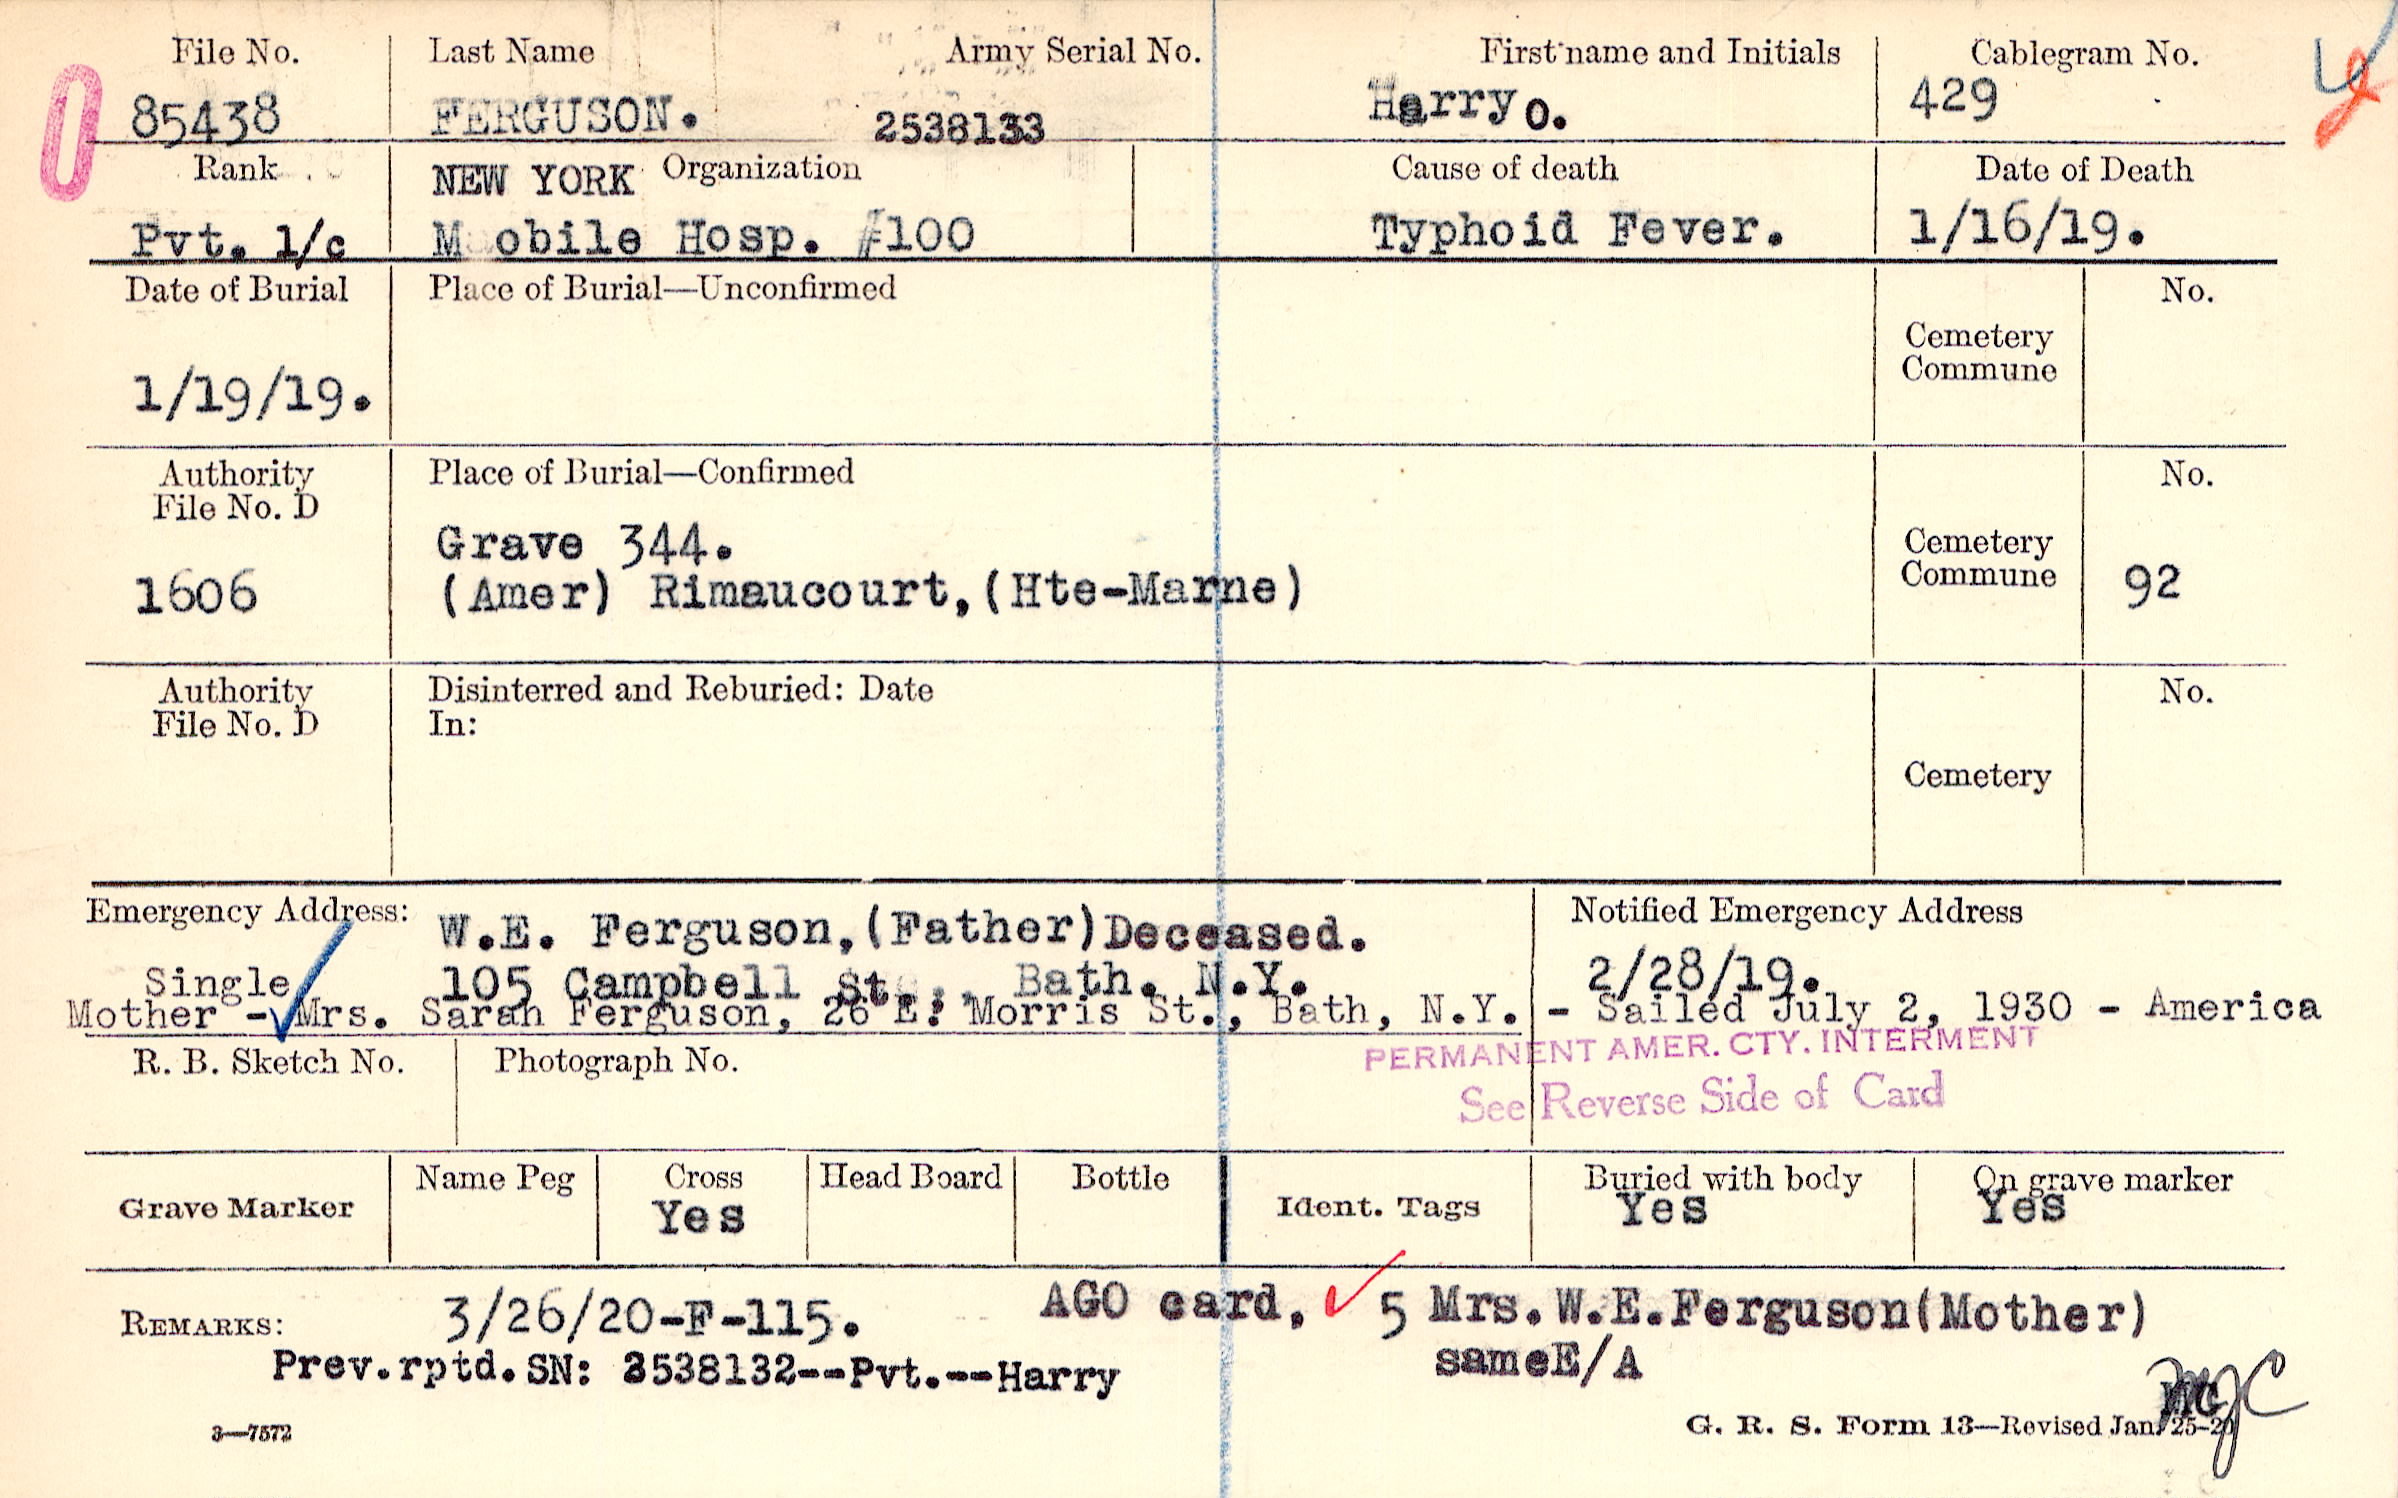 File No. Last Name Army Serial No. First name and Initials Cablegram No.
85438 FERGUSON. 2538133 Harry O. 429
Rank NEW YORK Organization Cause of death Date of Death
Pvt. 1/c Mobile Hosp. #100 Typhoid Fever. 1/16/19.
Date of Burial Place of Burial—Unconfirmed No.
Cemetery
Commune
1/19/19.
Authority Place of Burial—Confirmed No.
File No. D
Grave 344. Cemetery
1606 (Amer) Rimaucourt,(Hte-Marne) Commune 92
Authority Disinterred and Reburied: Date No.
File No. D In:
Cemetery
Emergency Address: W.E. Ferguson,(Father)Deceased. Notified Emergency Address
Single 105 Campbell St., Bath. N.Y. 2/28/19.
Mother - Mrs. Sarah Ferguson, 26 E. Morris St., Bath, N.Y. - Sailed July 2, 1930 - America
R. B. Sketch No. Photograph No. PERMANENT AMER. CTY. INTERMENT
See Reverse Side of Card
Name Peg Cross Head Board Bottle Buried with body On grave marker
Grave Marker Yes Ident. Tags Yes Yes
REMARKS: 3/26/20-F-115. AGO card. 5 Mrs.W.E.Ferguson(Mother)
Prev.rptd.SN: 2538132--Pvt.--Harry sameE/A
MJC
3—7572 G. R. S. Form 13—Revised Jan. 25-20